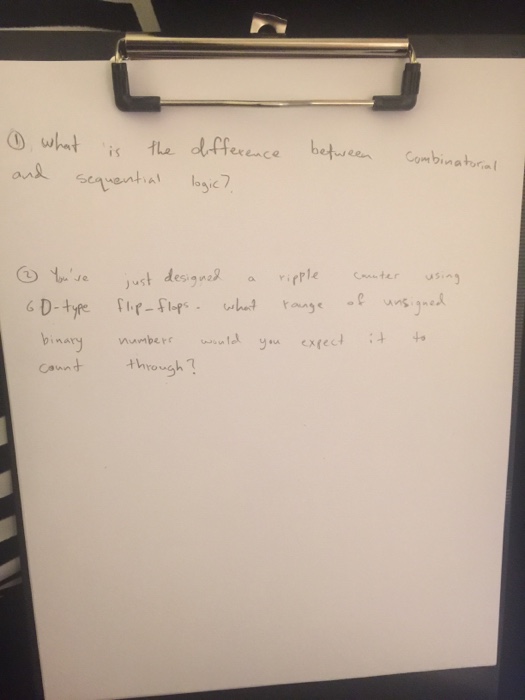 ① what is the difference between Combinatorial
and sequential logic?
② You've just designed a ripple counter using
6 D-type flip-flops. what range of unsigned
binary numbers would you expect it to
count through?